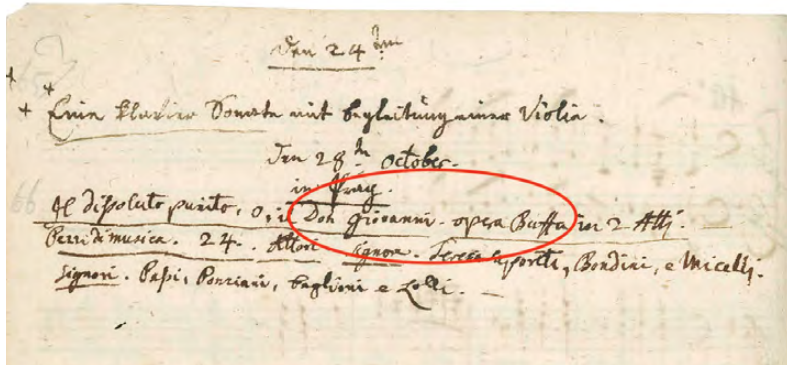 Den 24ten
Eine klavier Sonate mit begleitung einer Violin.
Den 28t. october.
in Prag.
Il dissoluto punito, o, il Don Giovanni. opera Buffa in 2 Atti.
Pezzi di musica. 24. Attori Signore. Teresa Saporiti, Bondini, e Micelli.
Signori. Bassi, Ponziani, baglioni e Lolli.